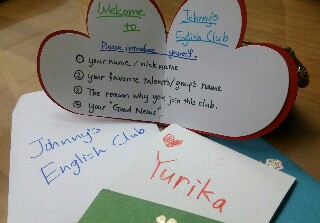 Welcome
to
Johnny's
English Club
Please introduce yourself.
① your name / nick name
② your favorite talents/group's name
③ The reason why you join this club.
④ your "Good News"
Johnny's
English Club
Yurika